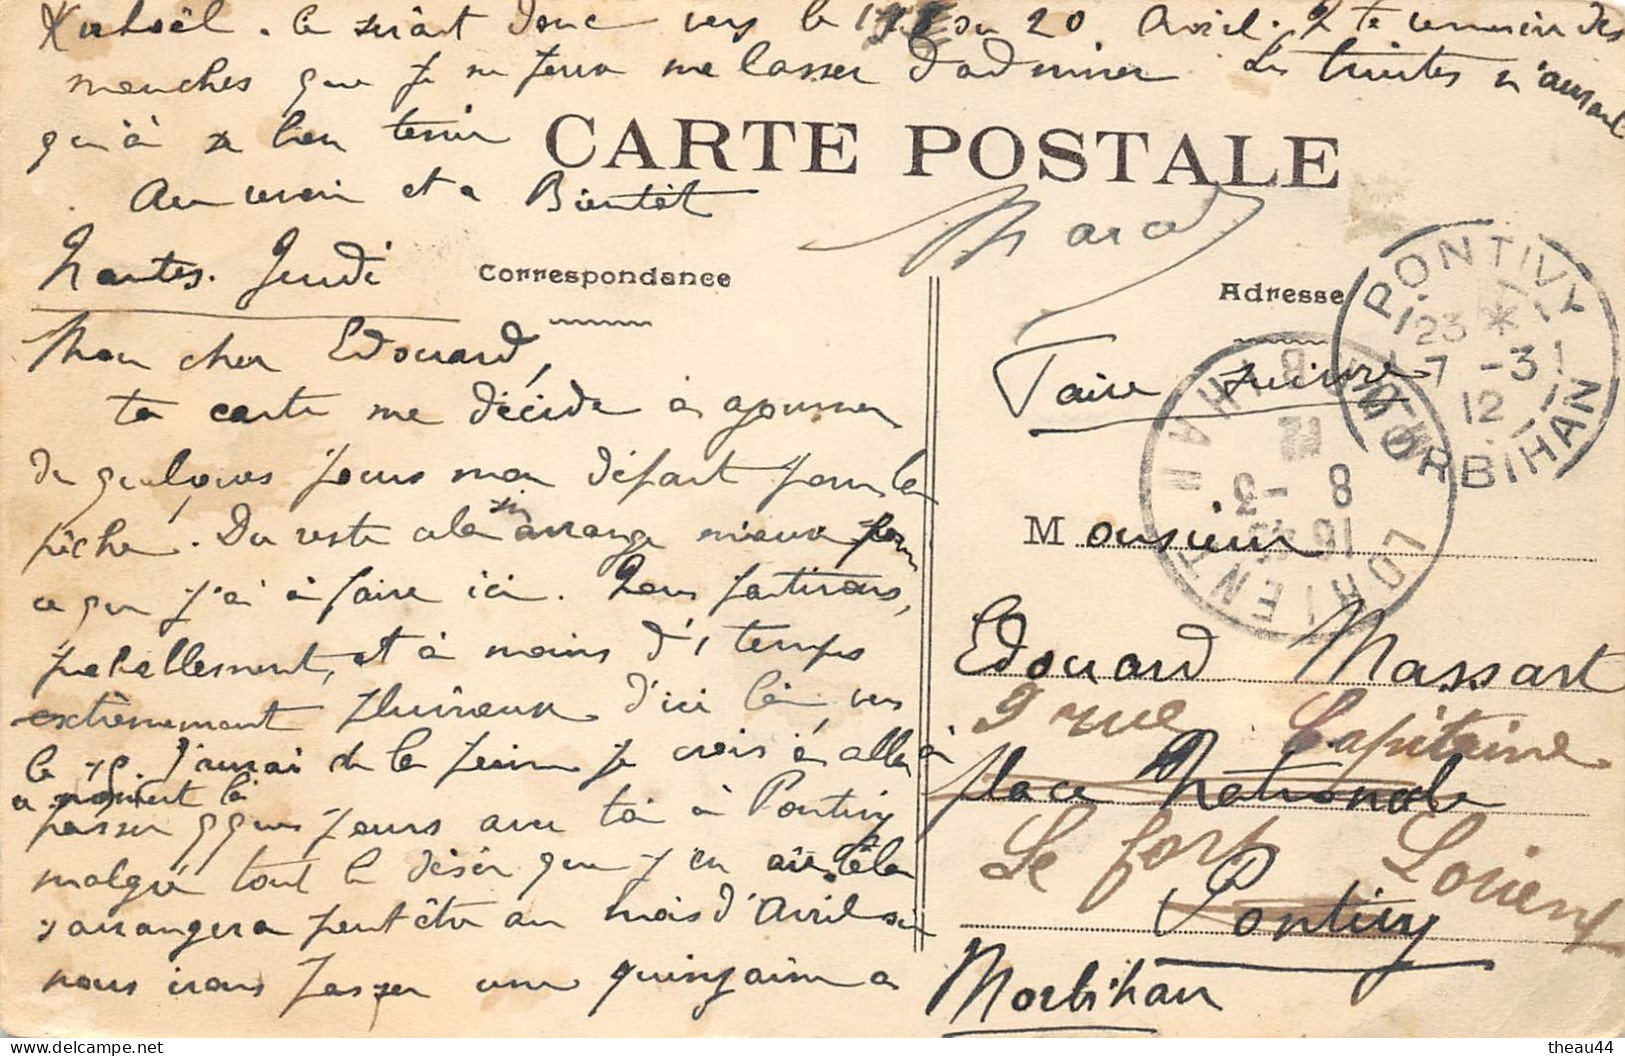 ce serait donc vers le 15 ou 20 Avril. Je te remercie des
mouches que je ne peux me lasser d'admirer. Les truites n'auront
qu'à se bien tenir
Au revoir et a Bientôt
CARTE POSTALE
Nantes. Jeudi
Correspondance
Mon cher Edouard,
ta carte me décide à ajourner
de quelques jours mon départ pour la
pêche. Du reste cela arrange mieux pour
ce que j'ai à faire ici. Nous partirons,
et à moins d'1 temps
extrêmement pluvieux d'ici là, vers
le J'aurai de la peine je crois à aller à
ce moment là
passer qques jours avec toi à Pontivy
malgré tout le désir que j'en ai. Cela
s'arrangera peut être au mois d'Avril si
nous irons passer une quinzaine a
Adresse
Faire suivre
PONTIVY
23 *
7 -3
12
MORBIHAN
LORIENT
8 -3
12
MORBIHAN
Monsieur
Edouard Massart
9 rue Capitaine
place Nationale
Le fort Lorient
Pontivy
Morbihan
theau44